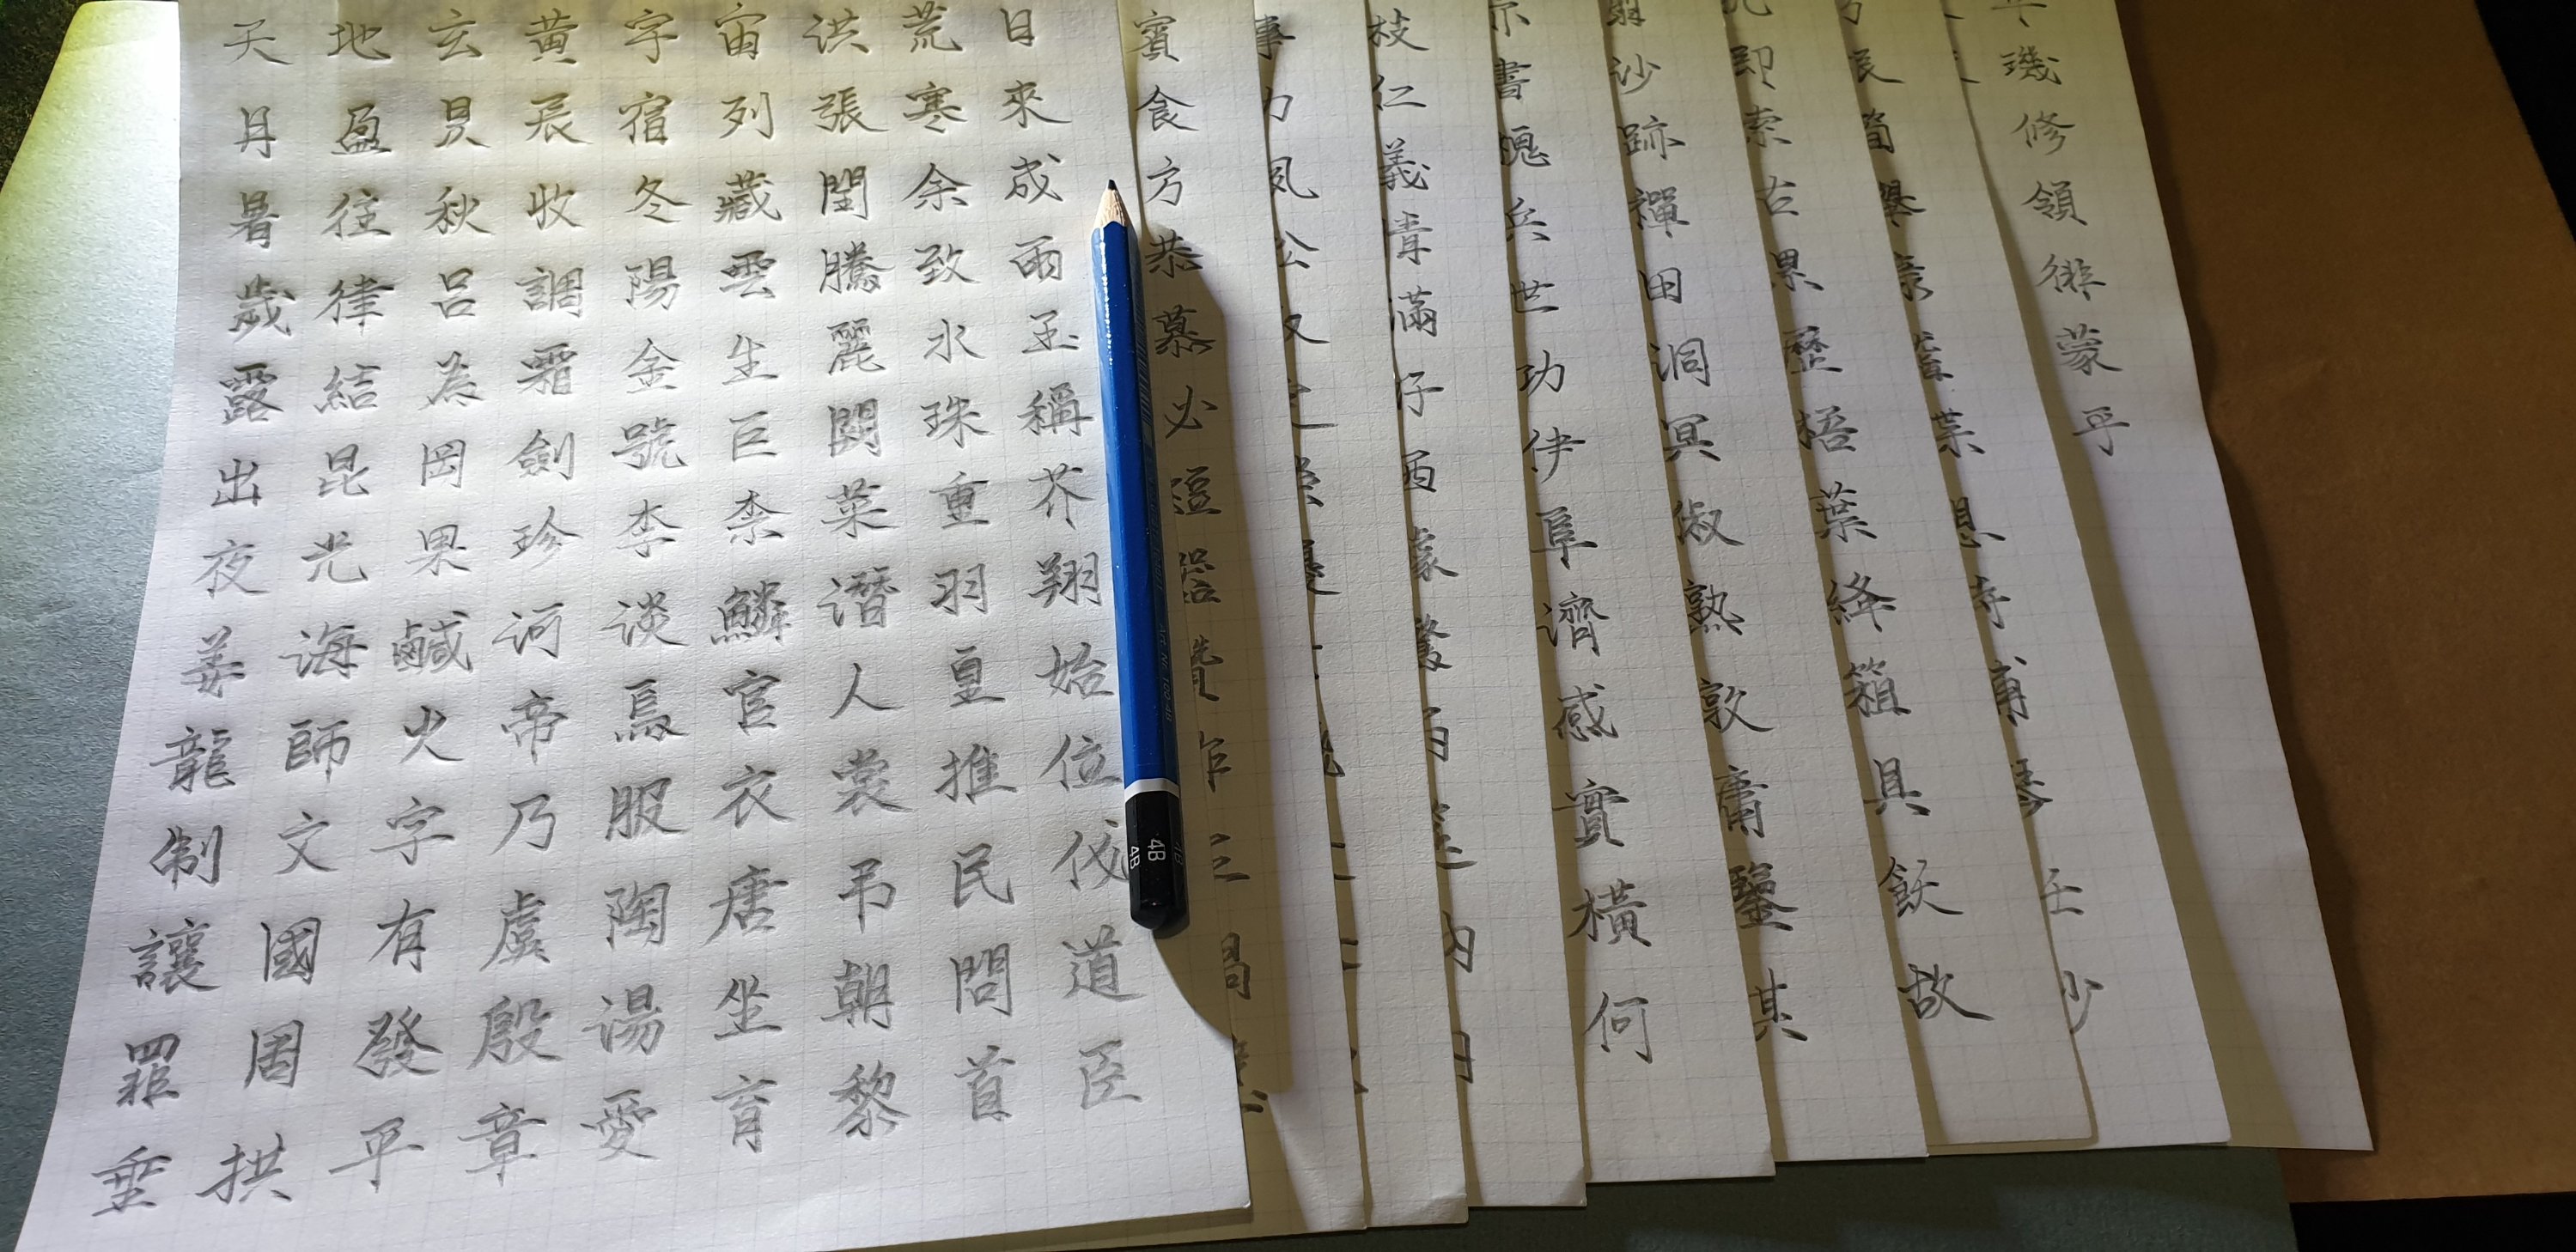 天地玄黄宇宙洪荒日
月盈昃辰宿列張寒來
暑往秋收冬藏閏余成
歲律呂調陽雲騰致雨
露結為霜金生麗水玉
出昆岡劍號巨闕珠稱
夜光果珍李柰菜重芥
姜海鹹河淡鱗潛羽翔
龍師火帝鳥官人皇始
制文字乃服衣裳推位
讓國有虞陶唐吊民伐
罪周發殷湯坐朝問道
垂拱平章愛育黎首臣
4B
賓
食
方
恭
慕
必
枝
仁
義
情
滿
仔
書
槐
兵
世
功
伊
阜
濟
感
實
橫
何
沙
跡
禪
田
洞
冥
俶
熟
敦
庸
鑒
其
即
索
古
累
歷
梧
葉
絳
箱
具
飫
故
璣
修
領
徘
蒙
乎